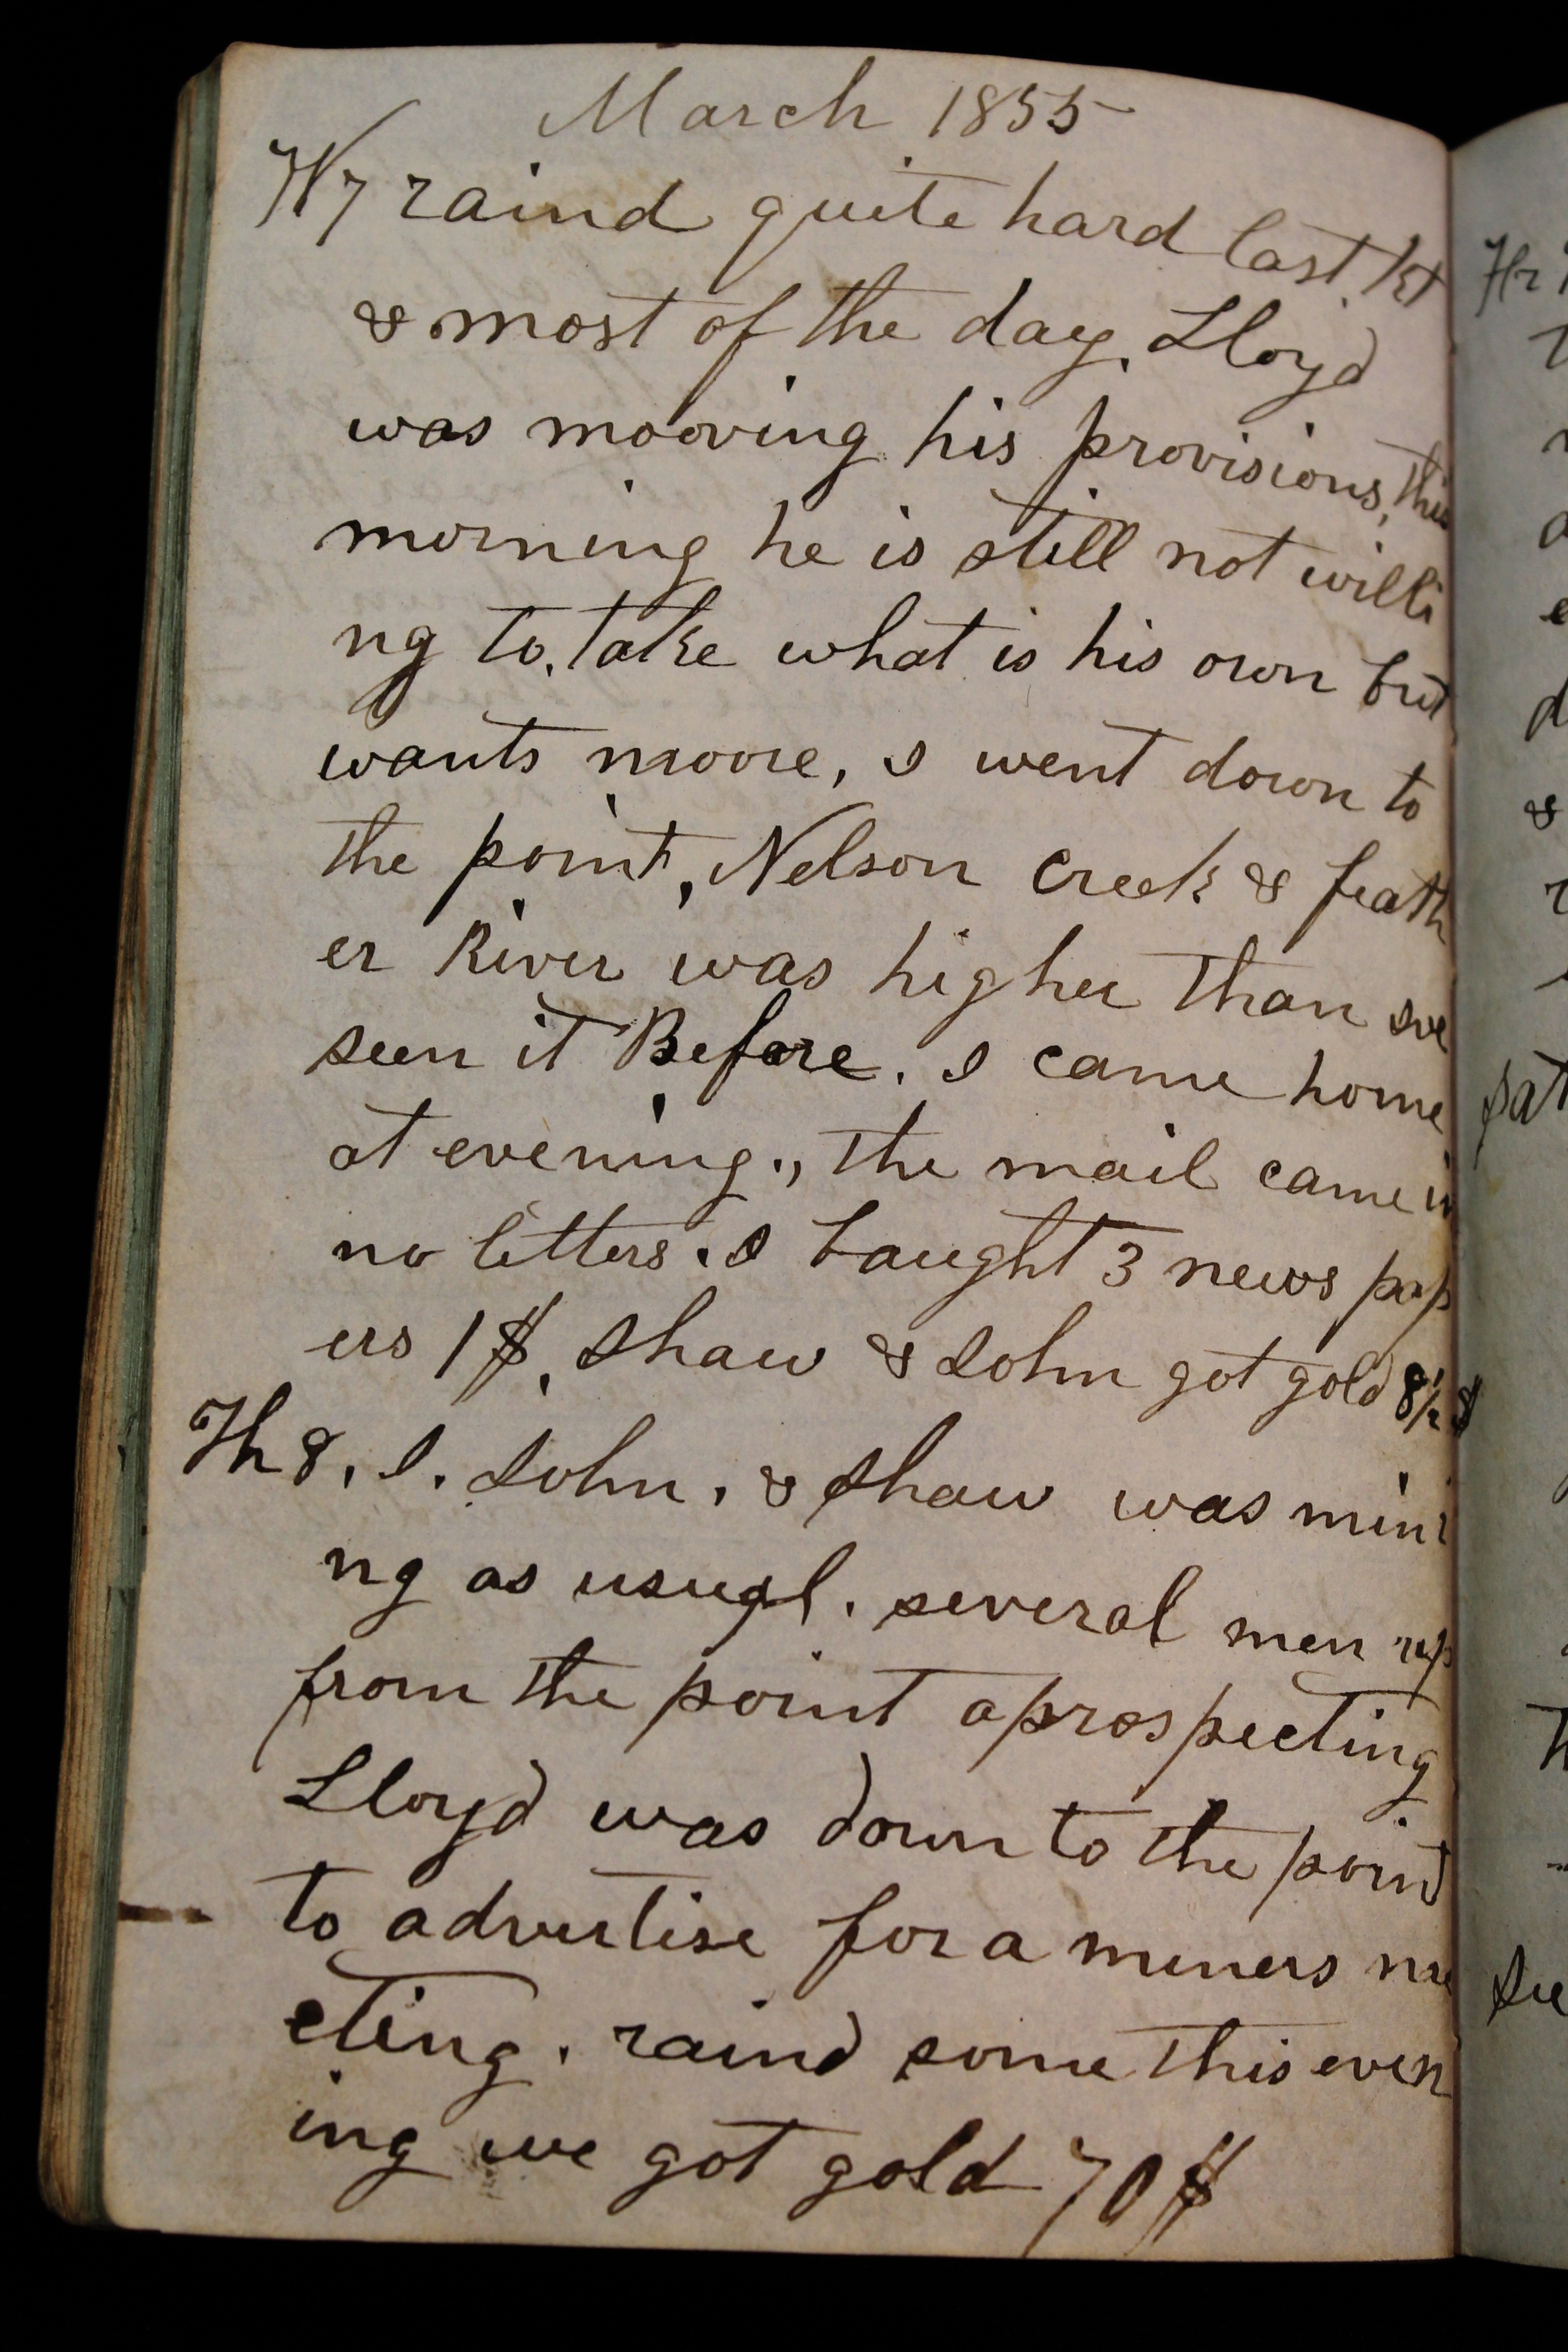 March 1855
W7 raind quite hard last
& most of the day, Lloyd
was mooving his provisions, this
morning he is still not willi
ng to, take what is his own but
wants moore, I went down to
the point, Nelson Creek & feath
er River was higher than ive
seen it Before. I came home
at evening., the mail came in
no letters. I baught 3 news pap
ers 1$, Shaw & John got gold 8½ $
Th 8, I. John, & Shaw was mini
ng as usual. several men up
from the point aprospecting
Lloyd was down to the point
to advertise for a miners me
eting. raind some this even
ing we got gold 70$
Fr
&
Sat
Su